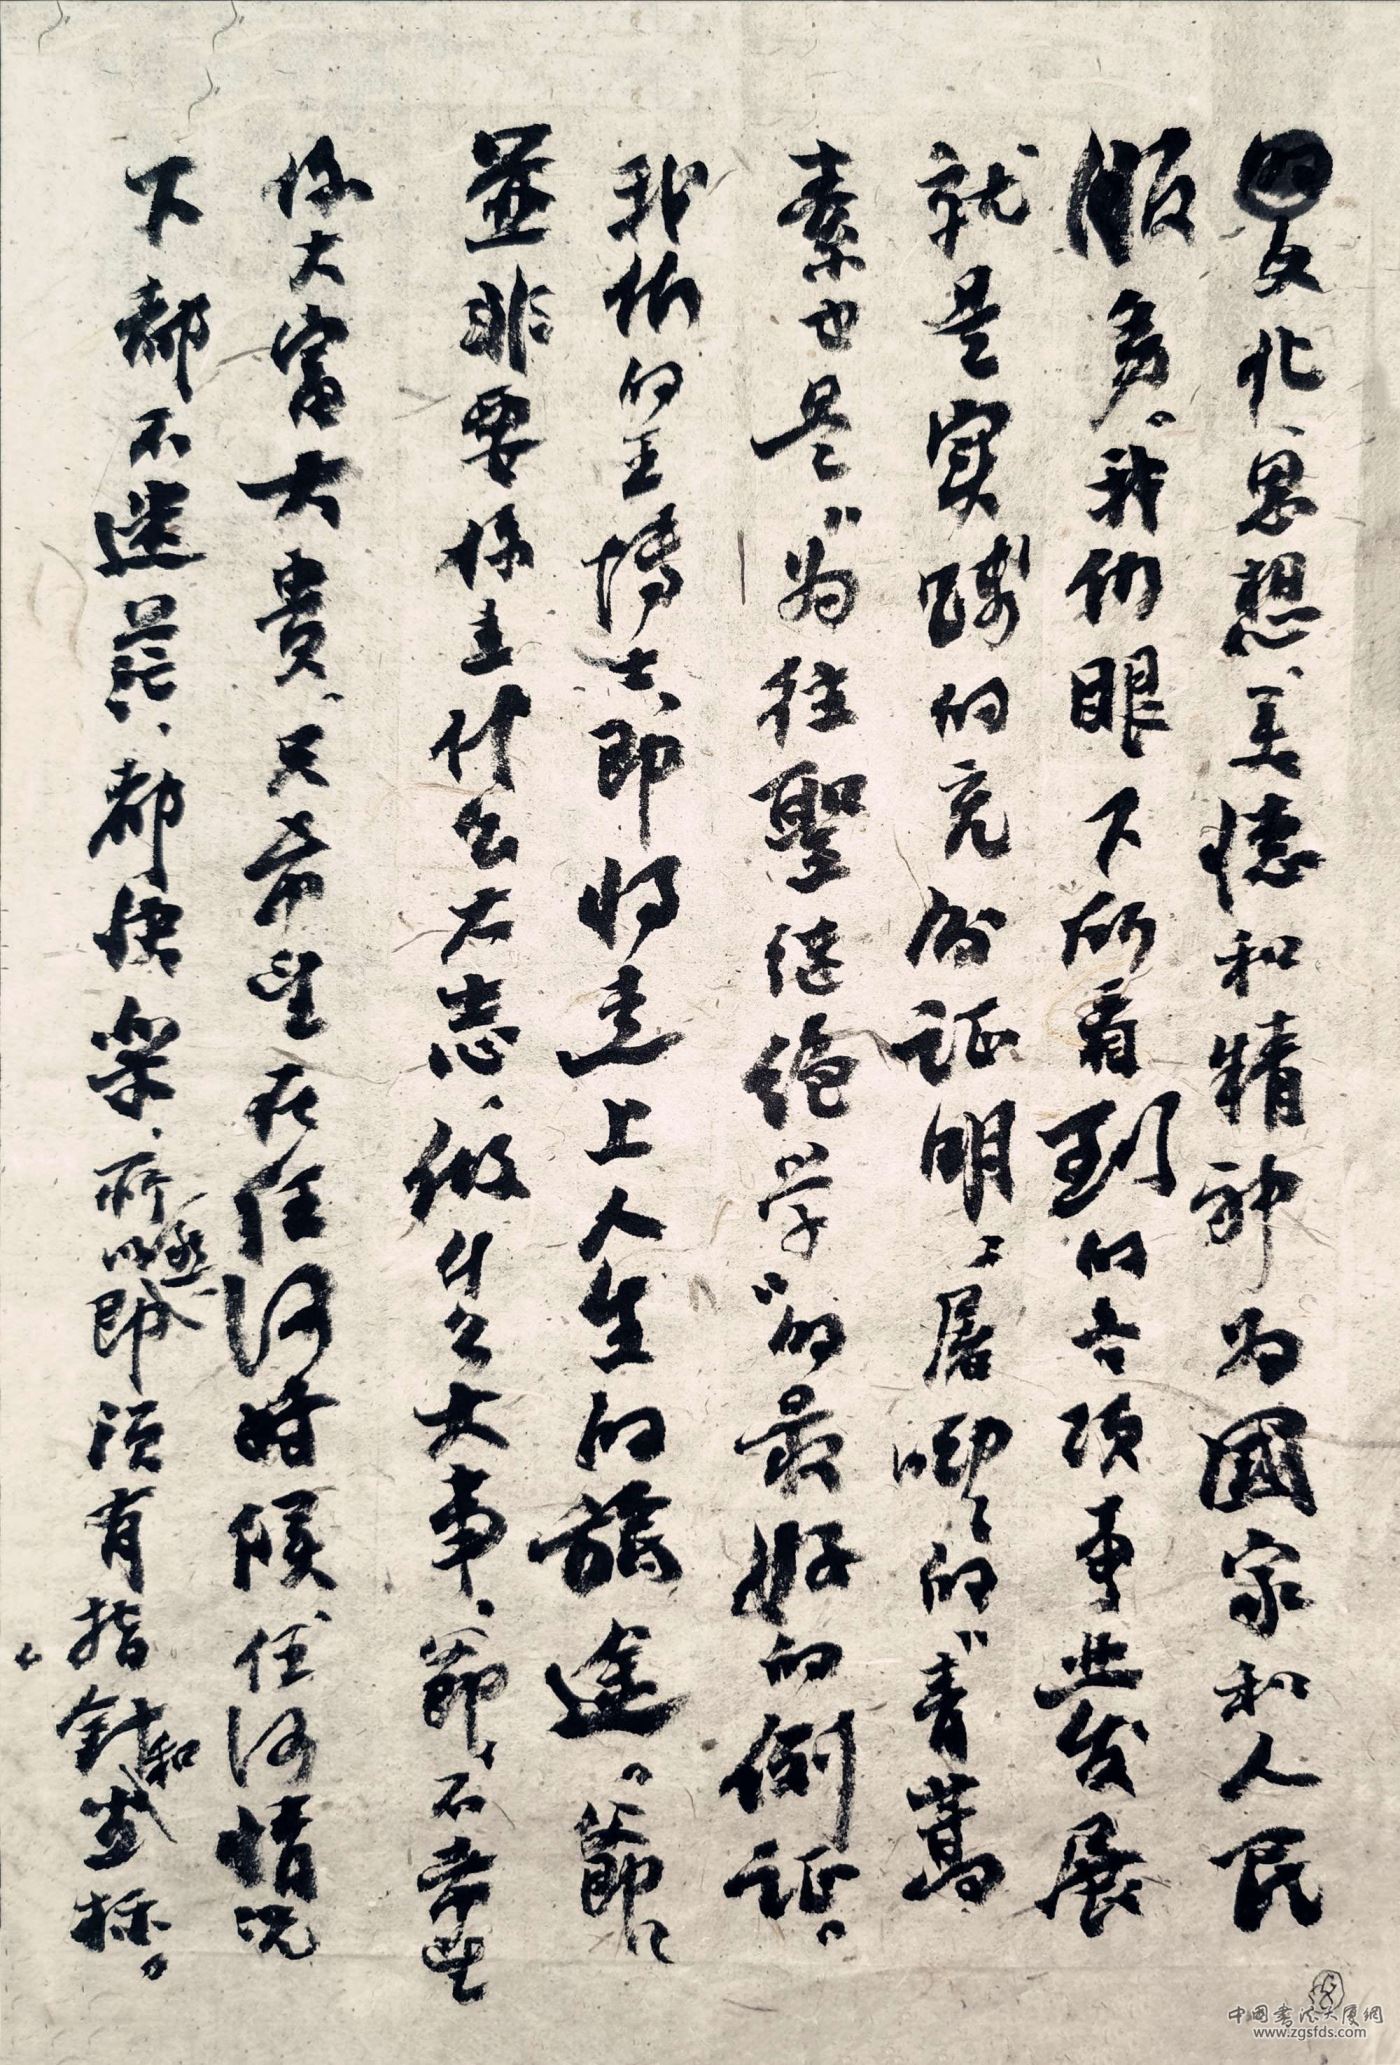 的文化、思想、美德和精神为國家和人民
服务。我们眼下所看到的各项事业发展
就是实践的充份证明、屠呦呦的“青蒿
素”也是“为往聖继绝学”的最好的例证。
我们的王博士、即将走上人生的旅途。“爺爺”
並非要你立什么大志、做什么大事、爺爺不希望
你大富大贵、只希望在任何時候任何情况
下都不迷茫、都快樂、所以即须有指針和坐标。
中國書法大厦網
www.zgsfds.com